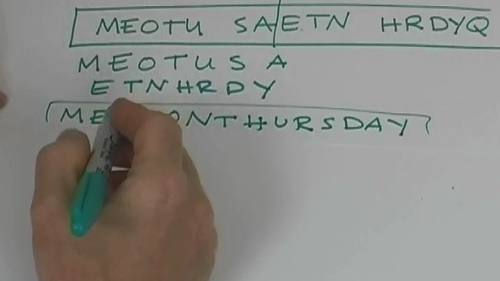 MEOTU SAETN HRDYQ
MEOTUSA
ETNHRDY
ME ONTHURSDAY